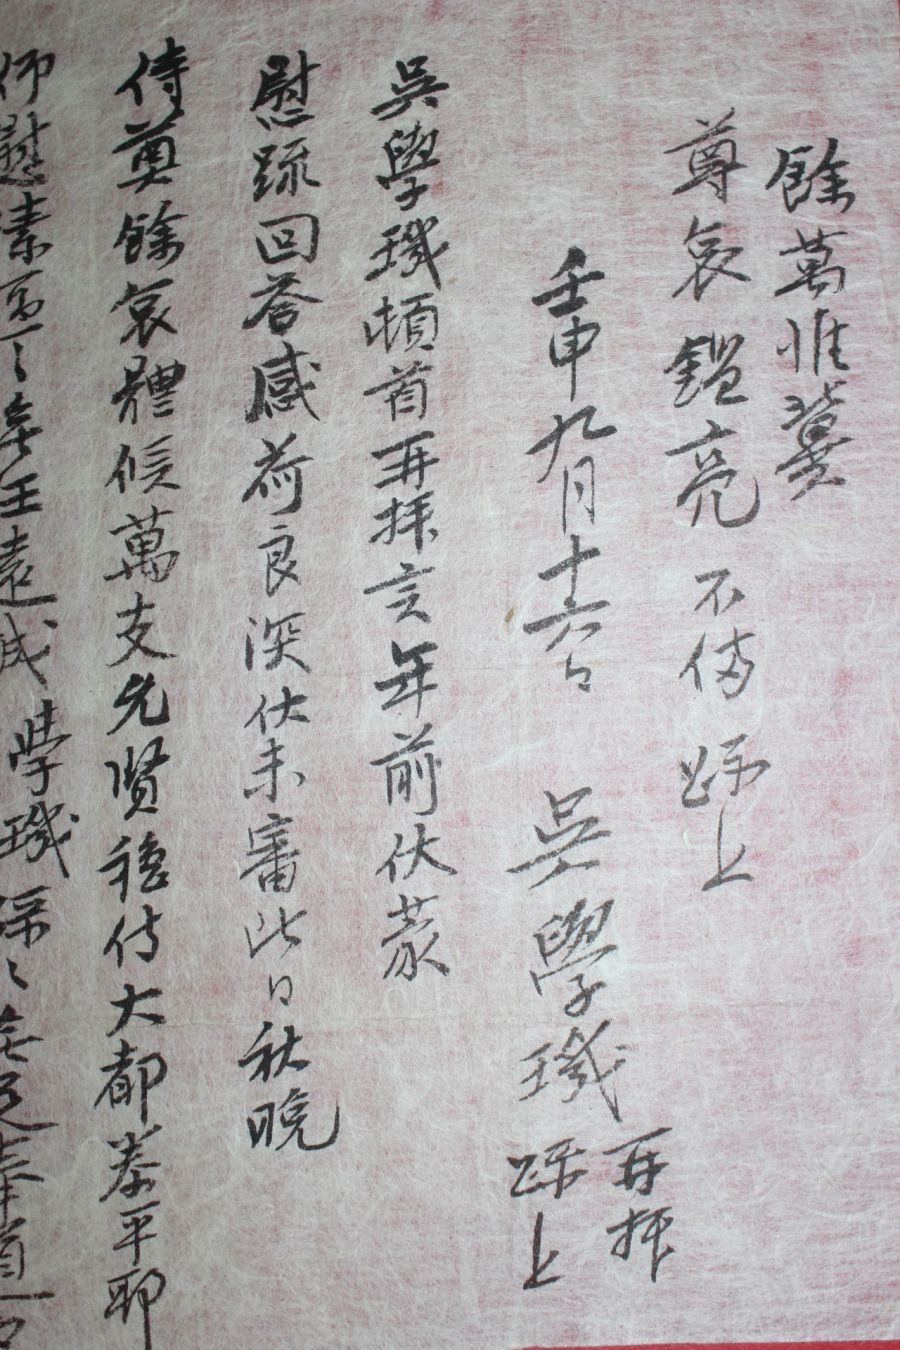 餘萬惟冀
尊哀鑑亮 不備 疏上
壬申九月十六日 吳學璣 再拜 疏上
吳學璣頓首再拜言年前伏蒙
慰疏回答感荷良深伏未審此日秋晩
侍奠餘哀體候萬支允賢穩侍大都泰平耶
仰慰溸 無任遠誠 學璣 無足奉道